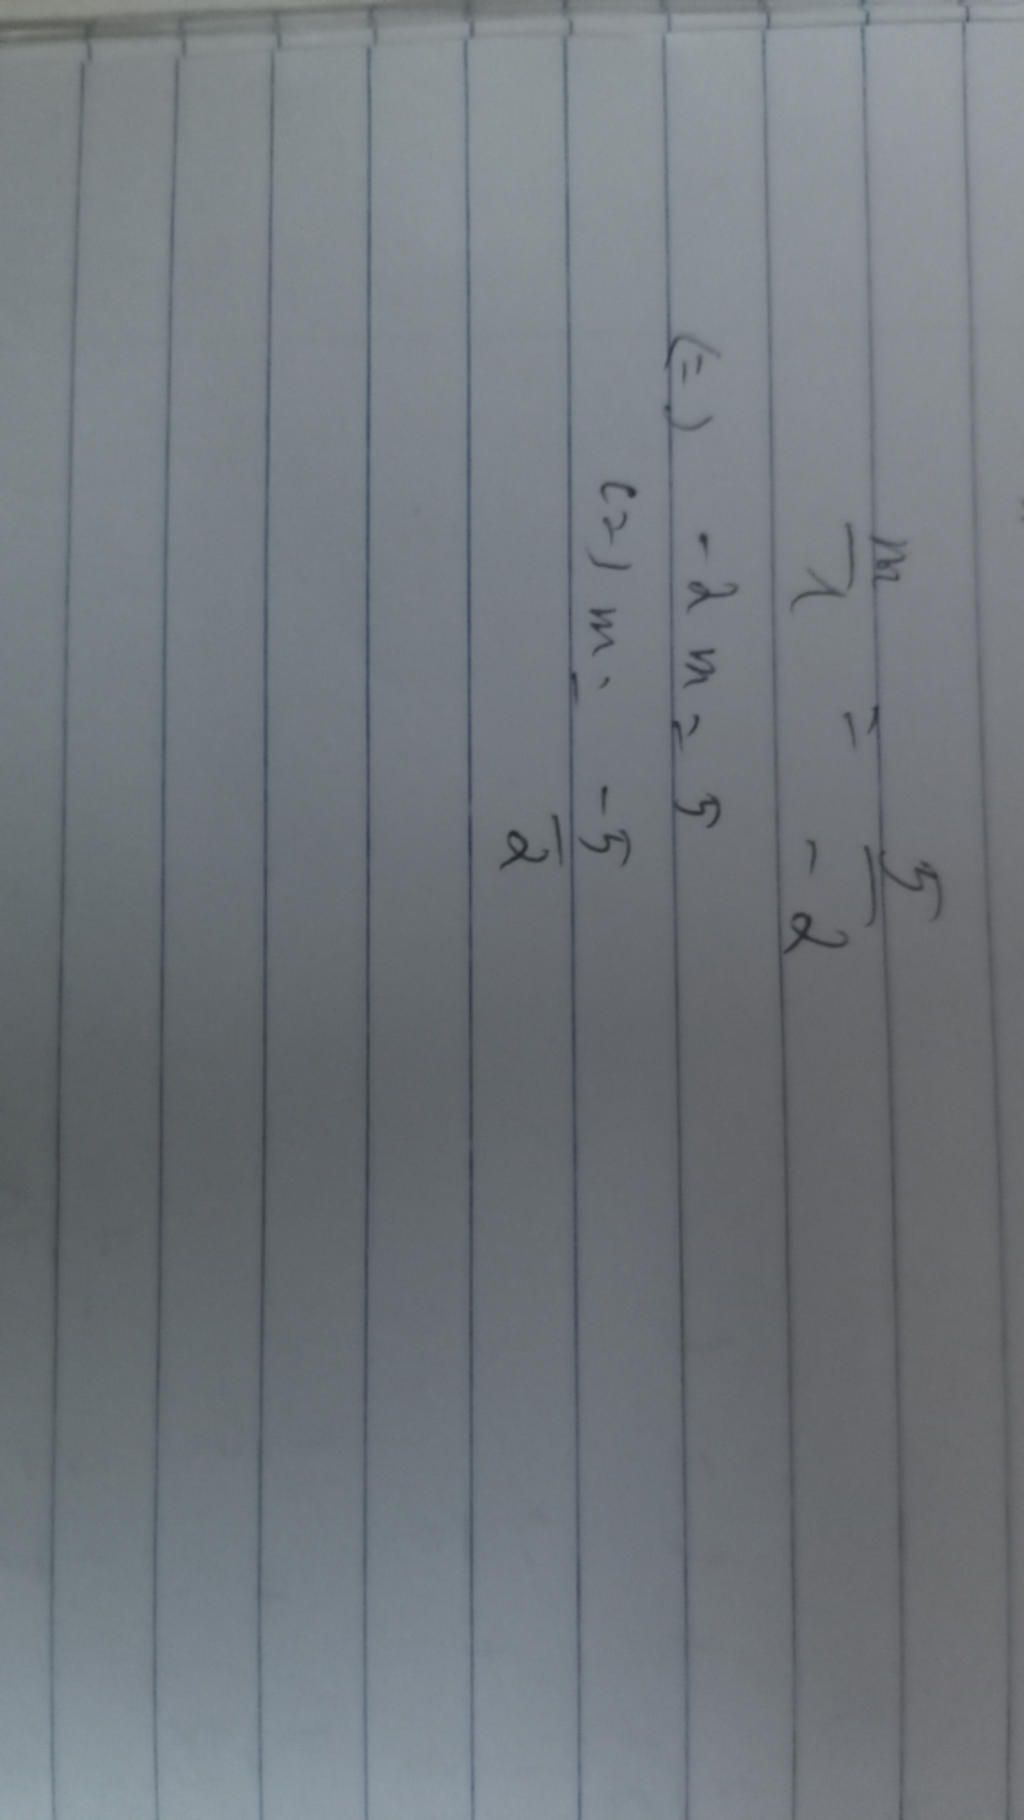 m/1 = 5/-2
(=) -2m = 5
(=) m = -5/2